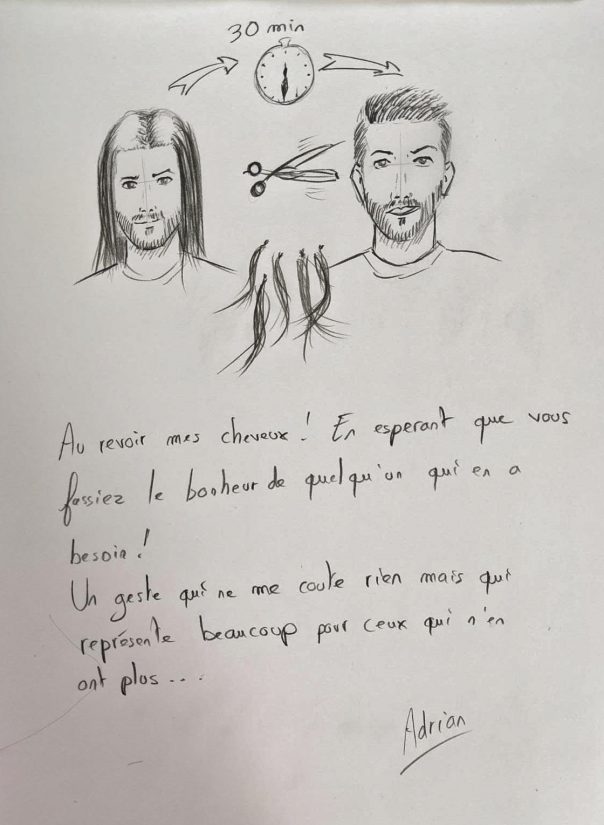 30 min
Au revoir mes cheveux ! En esperant que vous
fassiez le bonheur de quelqu'un qui en a
besoin !
Un geste qui ne me coute rien mais qui
représente beaucoup pour ceux qui n'en
ont plus...
Adrian